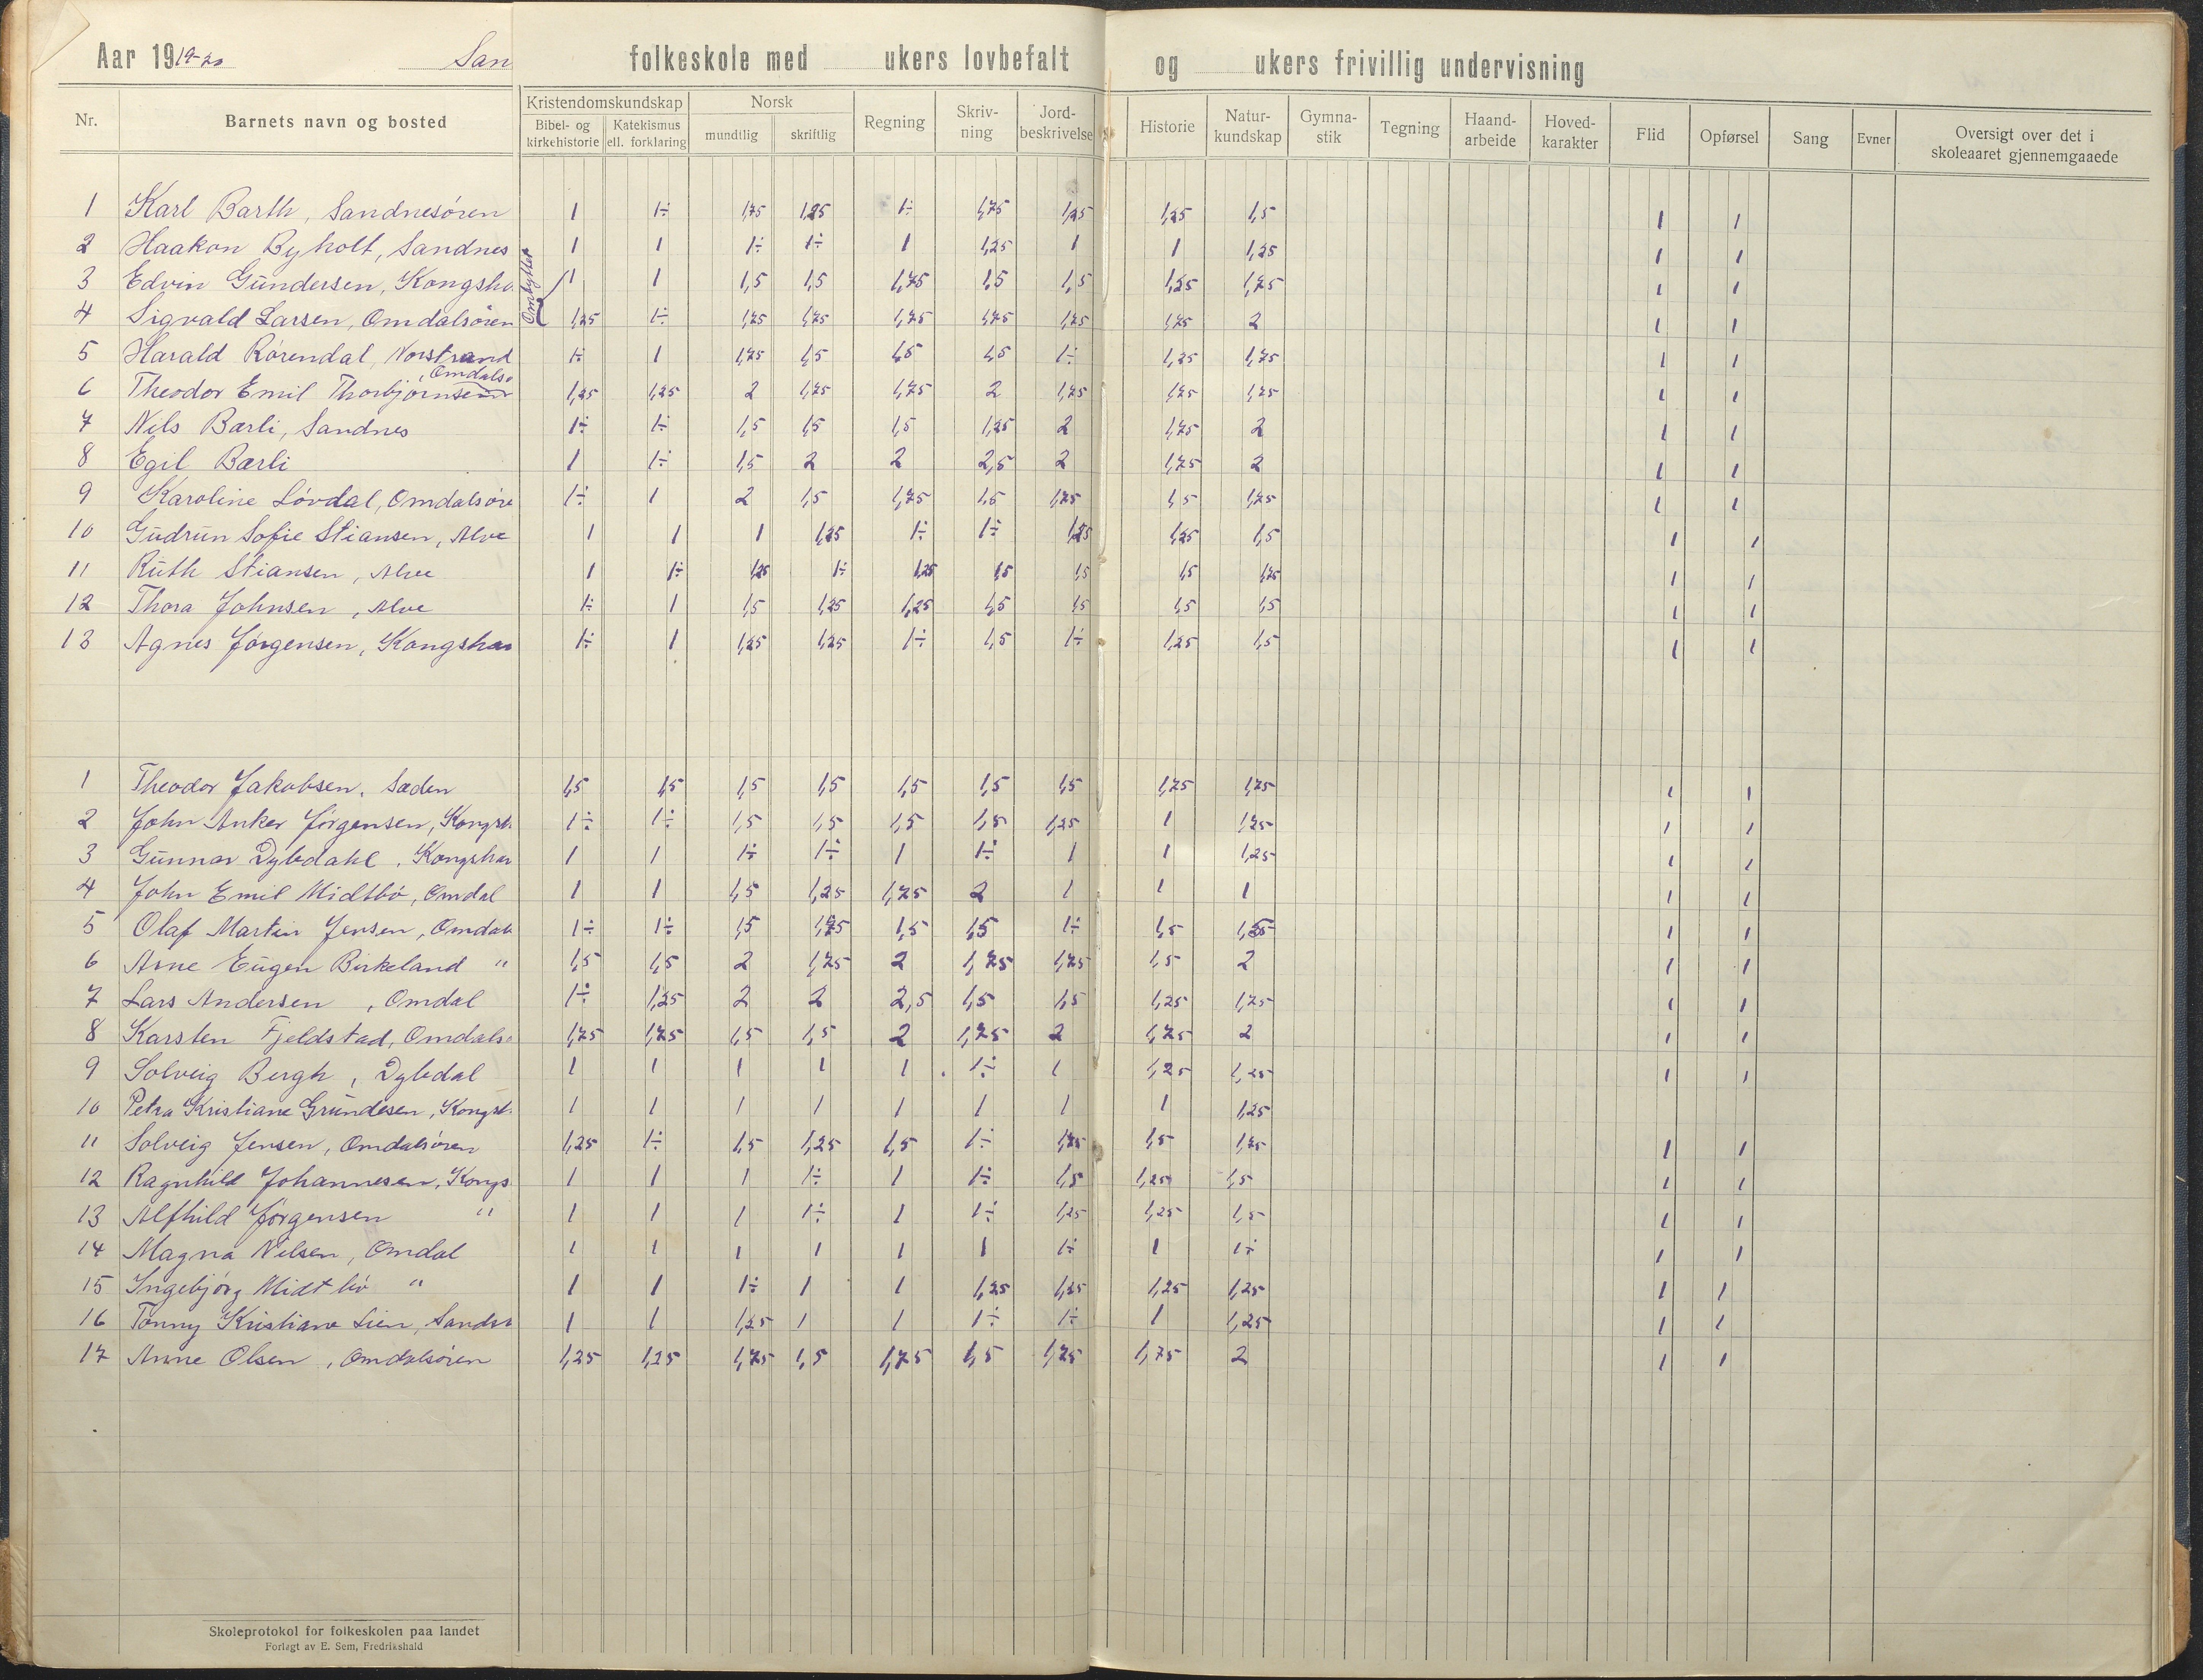 Aar 1919-20 San folkeskole med ukers lovbefalt og ukers frivillig undervisning
Nr. Barnets navn og bosted Kristendomskundskap Norsk Regning Skriv-ning Jord-beskrivelse Historie Natur-kundskap Gymna-stik Tegning Haand-arbeide Hoved-karakter Flid Opførsel Sang Evner Oversigt over det i skoleaaret gjennemgaaede
Bibel- og kirkehistorie Katekismus ell. forklaring mundtlig skriftlig
1 Karl Barth, Sandnesören 1 1÷ 1,75 1,25 1÷ 1,75 1,25 1,25 1,5 1 1
2 Haakon Byholt, Sandnes 1 1 1÷ 1÷ 1 1,25 1 1 1,25 1 1
Ombyttet
3 Edvin Gundersen, Kongsha 1 1 1,5 1,5 1,75 1,5 1,5 1,25 1,75 1 1
4 Sigvald Larsen, Omdalsören 1,25 1÷ 1,75 1,75 1,75 1,75 1,75 1,75 2 1 1
5 Harald Rörendal, Norstrand 1÷ 1 1,75 1,5 1,5 1,5 1÷ 1,25 1,75 1 1
, Omdalsö
6 Theodor Emil Thorbjörnsen 1,25 1,25 2 1,75 1,75 2 1,75 1,75 1,75 1 1
7 Nils Bærli, Sandnes 1÷ 1÷ 1,5 1,5 1,5 1,25 2 1,75 2 1 1
8 Egil Bærli 1 1÷ 1,5 2 2 2,5 2 1,75 2 1 1
9 Karoline Lövdal, Omdalsöre 1÷ 1 2 1,5 1,75 1,5 1,75 1,5 1,75 1 1
10 Gudrun Sofie Stiansen, Alve 1 1 1 1,25 1÷ 1÷ 1,25 1,25 1,5 1 1
11 Ruth Stiansen, Alve 1 1÷ 1,25 1÷ 1,25 1,5 1,5 1,5 1,75 1 1
12 Thora Johnsen, Alve 1÷ 1 1,5 1,25 1,25 1,5 1,5 1,5 1,5 1 1
13 Agnes Jörgensen, Kongshav 1÷ 1 1,25 1,25 1÷ 1,5 1÷ 1,25 1,5 1 1
1 Theodor Jakobsen, Sæden 1,5 1,5 1,5 1,5 1,5 1,5 1,5 1,75 1,75 1 1
2 John Anker Jörgensen, Kongsh 1÷ 1÷ 1,5 1,5 1,5 1,5 1,25 1 1,75 1 1
3 Gunnar Dybdahl, Kongshav 1 1 1÷ 1÷ 1 1÷ 1 1 1,25 1 1
4 John Emil Midtbö, Omdal 1 1 1,5 1,25 1,75 2 1 1 1 1 1
5 Olaf Martin Jensen, Omdals 1÷ 1÷ 1,5 1,75 1,5 1,5 1÷ 1,5 1 1
6 Arne Eugen Birkeland " 1,5 1,5 2 1,75 2 1,75 1,75 1,5 2 1 1
7 Lars Andersen, Omdal 1÷ 1,25 2 2 2,5 1,5 1,5 1,25 1,75 1 1
8 Karsten Fjeldstad, Omdalsö 1,75 1,75 1,5 1,5 2 1,75 2 1,75 2 1 1
9 Solveig Bergh, Dybdal 1 1 1 1 1 1÷ 1 1,25 1,25 1 1
10 Petra Kristiane Grundesen, Kongsh 1 1 1 1 1 1 1 1 1,25
11 Solveig Jensen, Omdalsören 1,25 1÷ 1,5 1,25 1,5 1÷ 1,75 1,5 1,75 1 1
12 Ragnhild Johannesen, Kongs 1 1 1 1÷ 1 1÷ 1,5 1,25 1,5 1 1
13 Alfhild Jörgensen " 1 1 1 1÷ 1 1÷ 1,25 1,25 1,5 1 1
14 Magna Nilsen, Omdal 1 1 1 1 1 1 1÷ 1 1÷ 1 1
15 Ingebjörg Midtbö " 1 1 1÷ 1 1 1,25 1,25 1,25 1,25 1 1
16 Tonny Kristiane Lien, Sandsn 1 1 1,25 1 1 1÷ 1÷ 1 1,25 1 1
17 Anne Olsen, Omdalsören 1,25 1,25 1,75 1,5 1,75 1,5 1,75 1,75 2 1 1
Skoleprotokol for folkeskolen paa landet
Forlagt av E. Sem, Fredrikshald